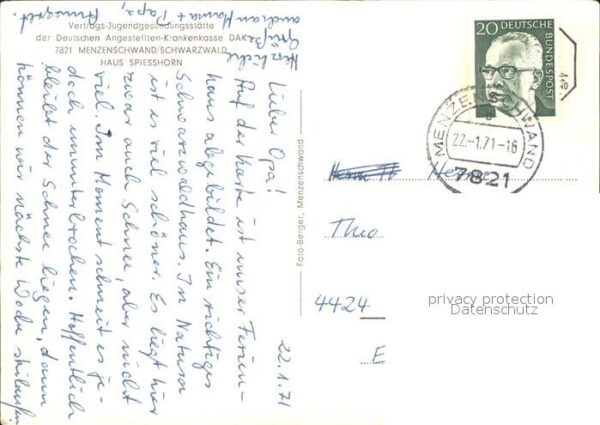 Vertrags-Jugendgesundungsstätte
der Deutschen Angestellten-Krankenkasse DAK
7821 MENZENSCHWAND/SCHWARZWALD
HAUS SPIESSHORN
22.1.71
Lieber Opa!
Auf der Karte ist unser Ferien-
haus abgebildet. Ein richtiges
Schwarzwaldhaus. In Natura
ist es viel schöner. Es liegt hier
zwar auch Schnee, aber nicht
viel. Im Moment schneit es je-
doch ununterbrochen. Hoffentlich
bleibt der Schnee liegen, dann
können wir nächste Woche skilaufen
Herzliche
Grüße
auch an Mama + Papa,
Foto-Berger, Menzenschwand
20
DEUTSCHE BUNDESPOST
MENZENSCHWAND
a
22.-1.71-16
7821
Herrn Th
Herrn
Theo
4424
E
privacy protection
Datenschutz